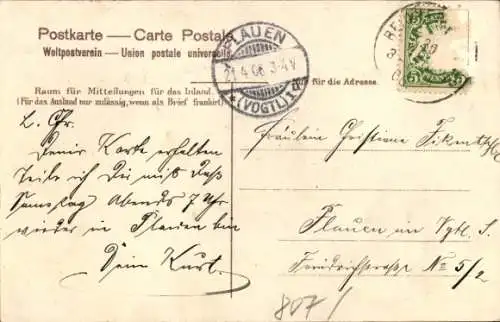 Postkarte — Carte Postale
Weltpostverein — Union postale universelle
PLAUEN
21.4.06. 3-4V
*(VOGTL.) d
Nur für die Adresse.
Raum für Mitteilungen für das Inland.
(Für das Ausland nur zulässig, wenn als Brief frankirt.)
5
L. Chr.
Deine Karte erhalten
Teile ich Dir mit daß
Samstag Abends 7 Uhr
wieder in Plauen bin
Dein Kurt.
Fräulein Christiane
Plauen im Vgtl. S.
Friedrichstrasse No 5/2
807/